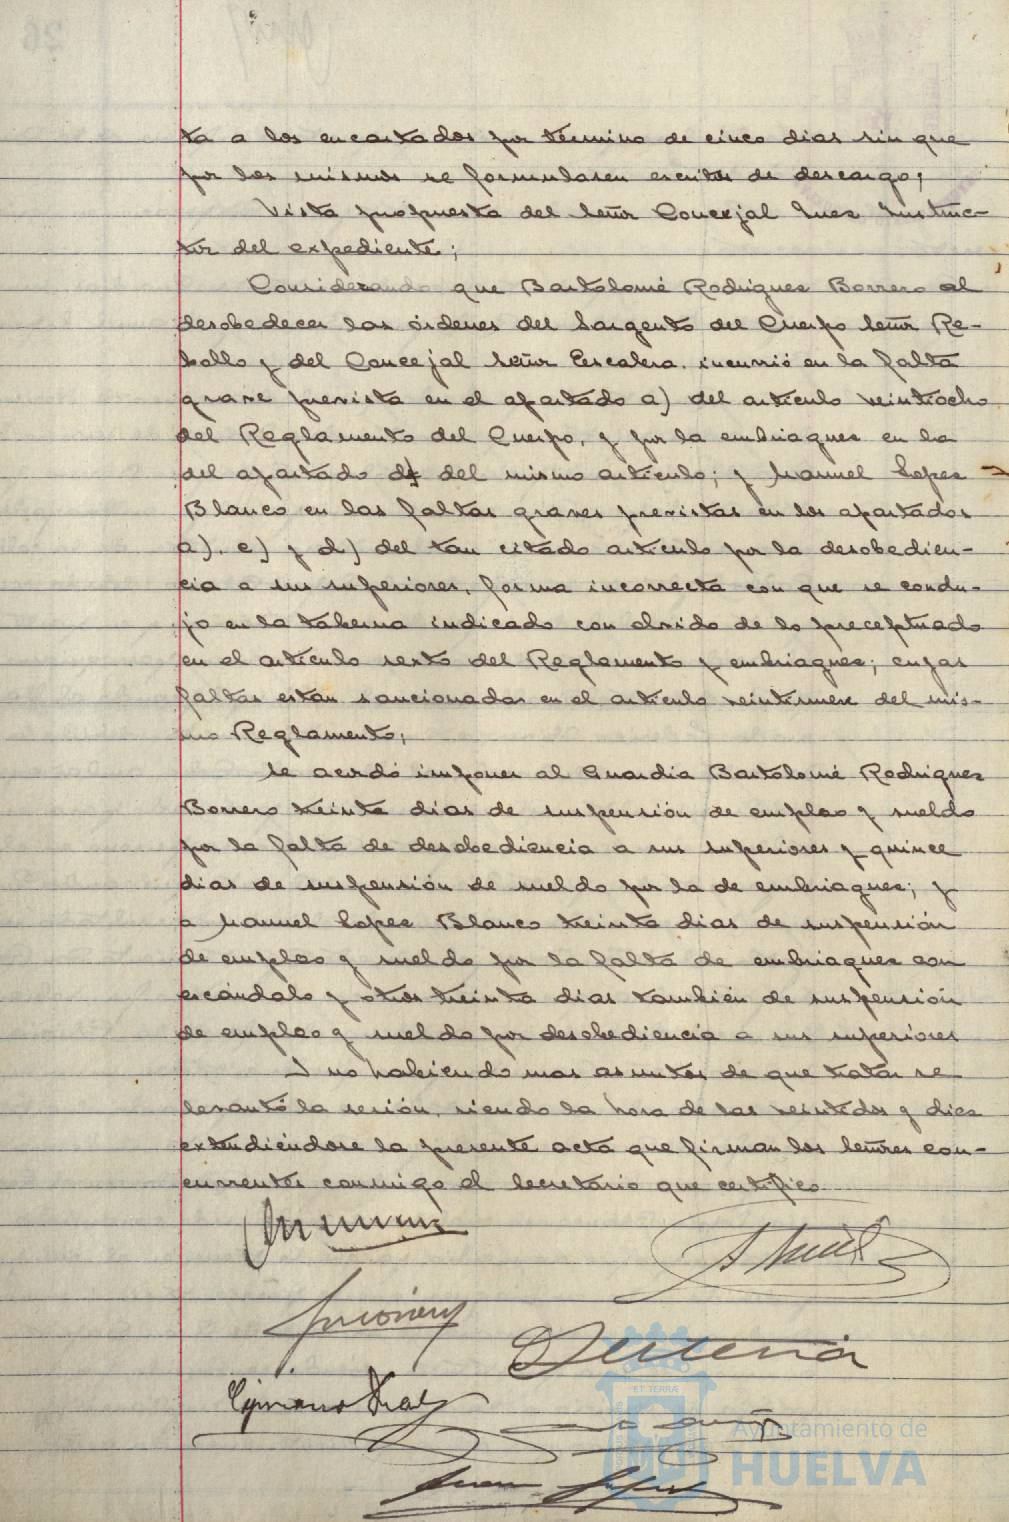 ta a los encartados por término de cinco dias sin que
por los mismos se formulasen escritos de descargo;
Vista propuesta del Señor Concejal Juez Instruc-
tor del expediente;
Considerando que Bartolomé Rodriguez Borrero al
desobedecer las órdenes del Sargento del Cuerpo Señor Re-
bollo y del Concejal Señor Escalera, incurrió en la falta
grave prevista en el apartado a) del articulo veintiocho
del Reglamento del Cuerpo, y por la embriaguez en la
del apartado d) del mismo articulo; y Manuel Lopez
Blanco en las faltas graves previstas en los apartados
a), c) y d) del tan citado articulo por la desobedien-
cia a sus superiores, forma incorrecta con que se condu-
jo en la taberna indicado con olvido de lo preceptuado
en el articulo sexto del Reglamento y embriaguez; cuyas
faltas estan sancionadas en el articulo veintinueve del mis-
mo Reglamento;
Se acordó imponer al Guardia Bartolomé Rodriguez
Borrero treinta dias de suspensión de empleo y sueldo
por la falta de desobediencia a sus superiores y quince
dias de suspensión de sueldo por la de embriaguez; y
a Manuel Lopez Blanco treinta dias de suspensión
de empleo y sueldo por la falta de embriaguez con
escándalo y otros treinta dias también de suspensión
de empleo y sueldo por desobediencia a sus superiores
Y no habiendo mas asuntos de que tratar se
levantó la sesión, siendo la hora de las veintidos y diez
extendiéndose la presente acta que firman los Señores con-
currentes conmigo el Secretario que certifico.
Cipriano
ET TERRÆ
Ayuntamiento de
HUELVA